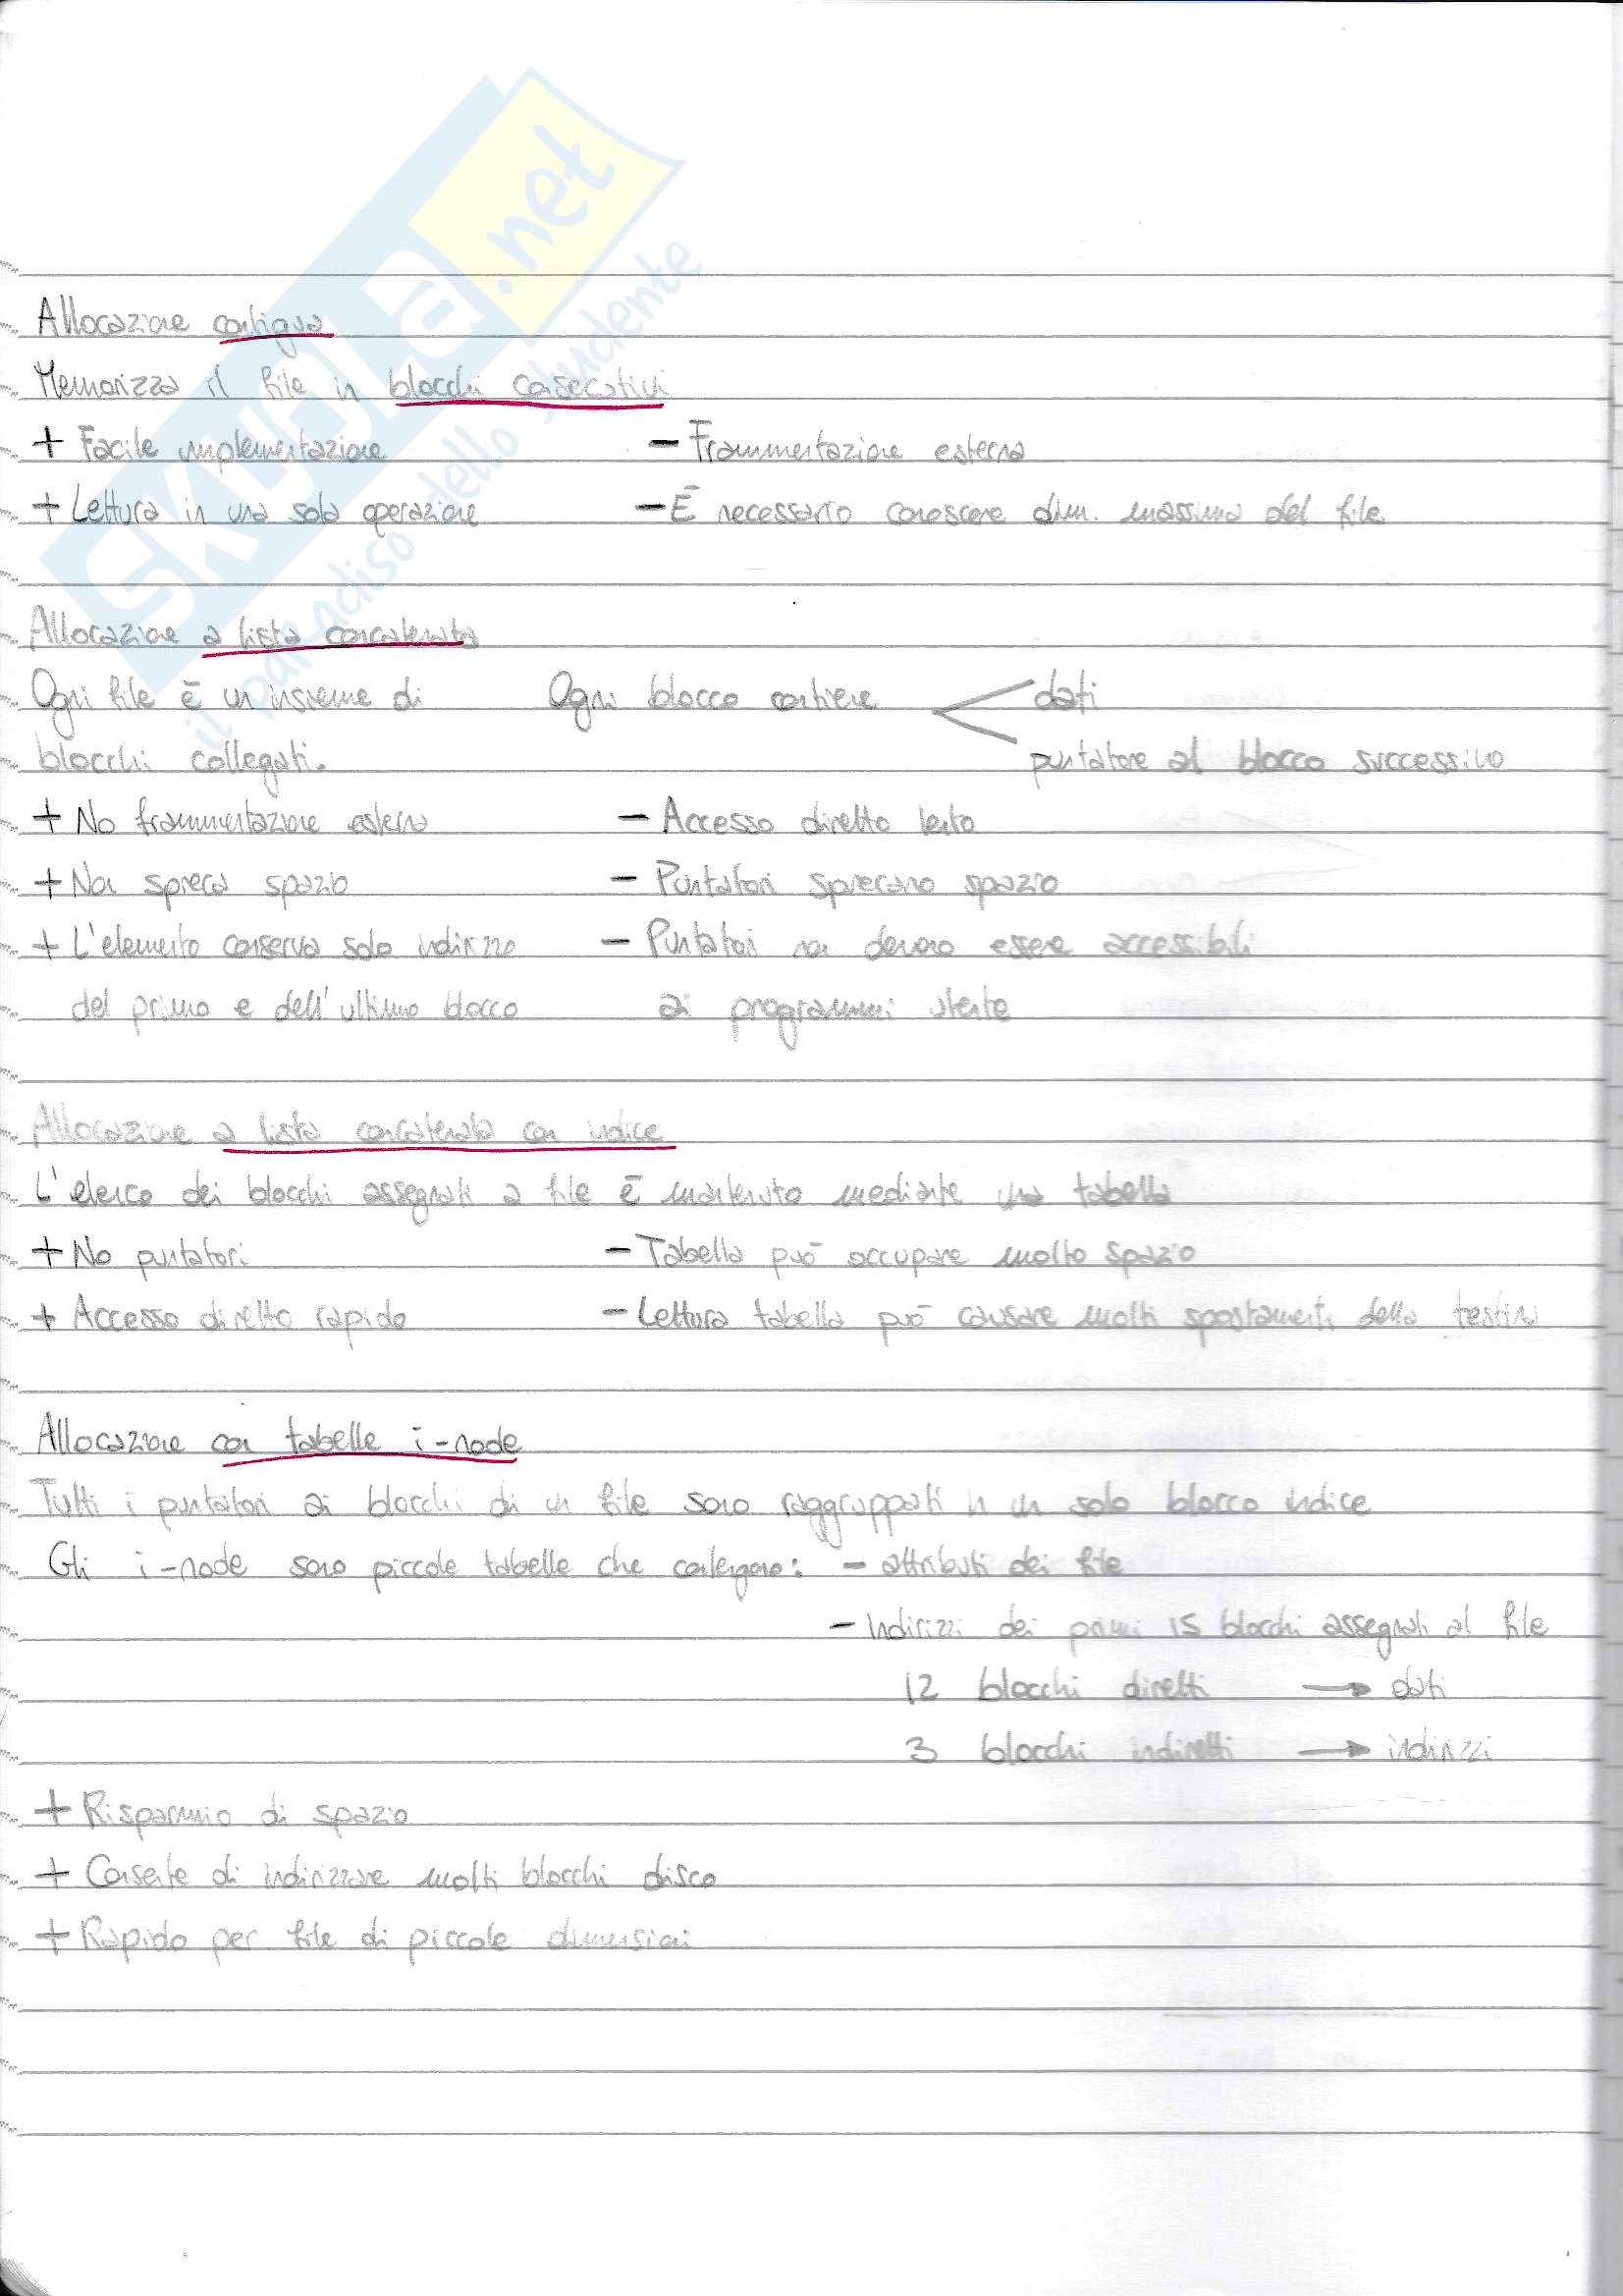 SKUOLA.net
il paradiso dello studente
Allocazione contigua
Memorizza il file in blocchi consecutivi
+ Facile implementazione – Frammentazione esterna
+ Lettura in una sola operazione – È necessario conoscere dim. massima del file
Allocazione a lista concatenata
Ogni file è un insieme di Ogni blocco contiene < dati
blocchi collegati. puntatore al blocco successivo
+ No frammentazione esterna – Accesso diretto lento
+ Non spreca spazio – Puntatori sprecano spazio
+ L'elemento conserva solo indirizzo – Puntatori non devono essere accessibili
del primo e dell'ultimo blocco ai programmi utente
Allocazione a lista concatenata con indice
L'elenco dei blocchi assegnati a file è mantenuto mediante una tabella
+ No puntatori – Tabella può occupare molto spazio
+ Accesso diretto rapido – Lettura tabella può causare molti spostamenti della testina
Allocazione con tabelle i-node
Tutti i puntatori ai blocchi di un file sono raggruppati in un solo blocco indice
Gli i-node sono piccole tabelle che contengono: – attributi dei file
– Indirizzi dei primi 15 blocchi assegnati al file
12 blocchi diretti → dati
3 blocchi indiretti → indirizzi
+ Risparmio di spazio
+ Consente di indirizzare molti blocchi disco
+ Rapido per file di piccole dimensioni